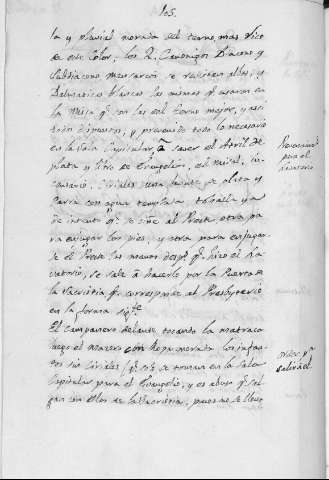 105.
la y pluvial morada del terno mas rico
de este color, los 2. Canonigos Diacono y
Subdiacono se visten albas, y
Dalmaticas blancas las mismas qe. usaron en
la Misa qe. son las del terno mejor, y assi
todo dispuesto, y prevenido todo lo necesario
en la Sala Capitular, a saver el Atril de
plata y libro de Evangelios, el misal, in-
censario, Ciriales una fuente de plata y
Jarra con agua templada tohalla ya
de intento qe. se ciñe al Preste otra pa-
ra enjugar los pies, y otra para enjugar-
se el Preste las manos desps. qe. hizo el la-
vatorio, se sale a hacerlo por la Puerta de
la Sacristia qe. corresponde al Presbyterio
en la forma sigte.
El campanero delante tocando la matraca
luego el Macero con ropa morada los infan-
tes sin Ciriales (qe. se toman en la Sala
Capitular para el Evangelio, y es abuso qe. sal-
gan con ellos de la Sacristia, pues no se lleva
Prevencion
para el
Lavatorio
Orden pa.
salir a el